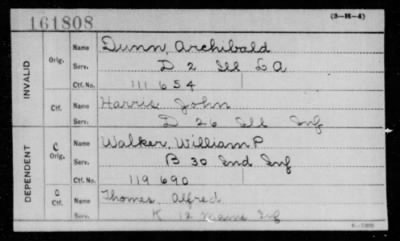 161808
(3-H-4)
INVALID
Orig.
Name Dunn, Archibald
Serv. D 2 Ill L A
Ctf. No. 111654
Ctf.
Name Harris John
Serv. D 26 Ill Inf
DEPENDENT
C Orig.
Name Walker, William P
Serv. B 30 Ind Inf
Ctf. No. 119690
C Ctf.
Name Thomes, Alfred
Serv. K 12 Maine Inf